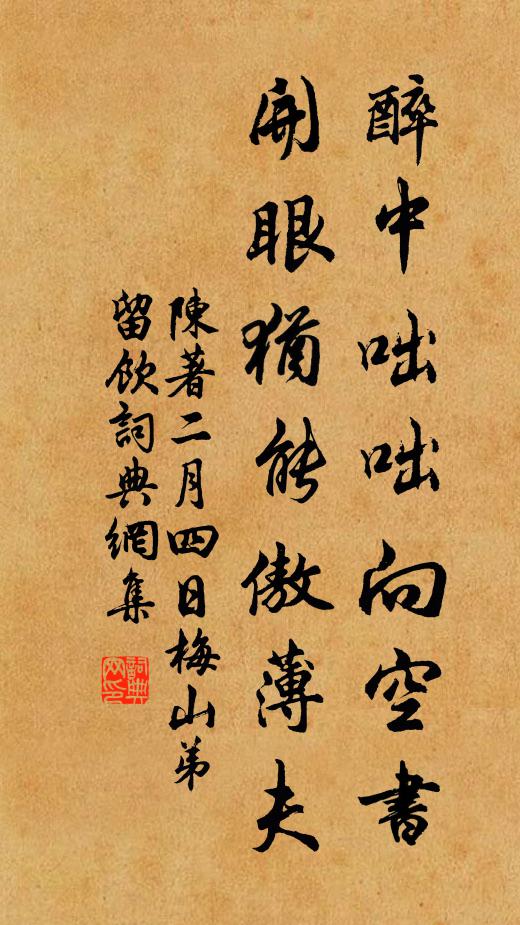 醉中咄咄向空書
開眼猶能傲薄夫
陳著二月四日梅山弟
留飲詞典網集
詞典
网印